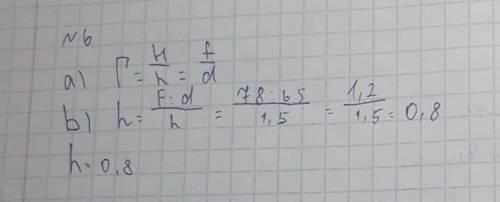 №6
a) Г = H/h = f/d
b) h = F:d/h = 78:65/1,5 = 1,2/1,5 = 0,8
h = 0,8